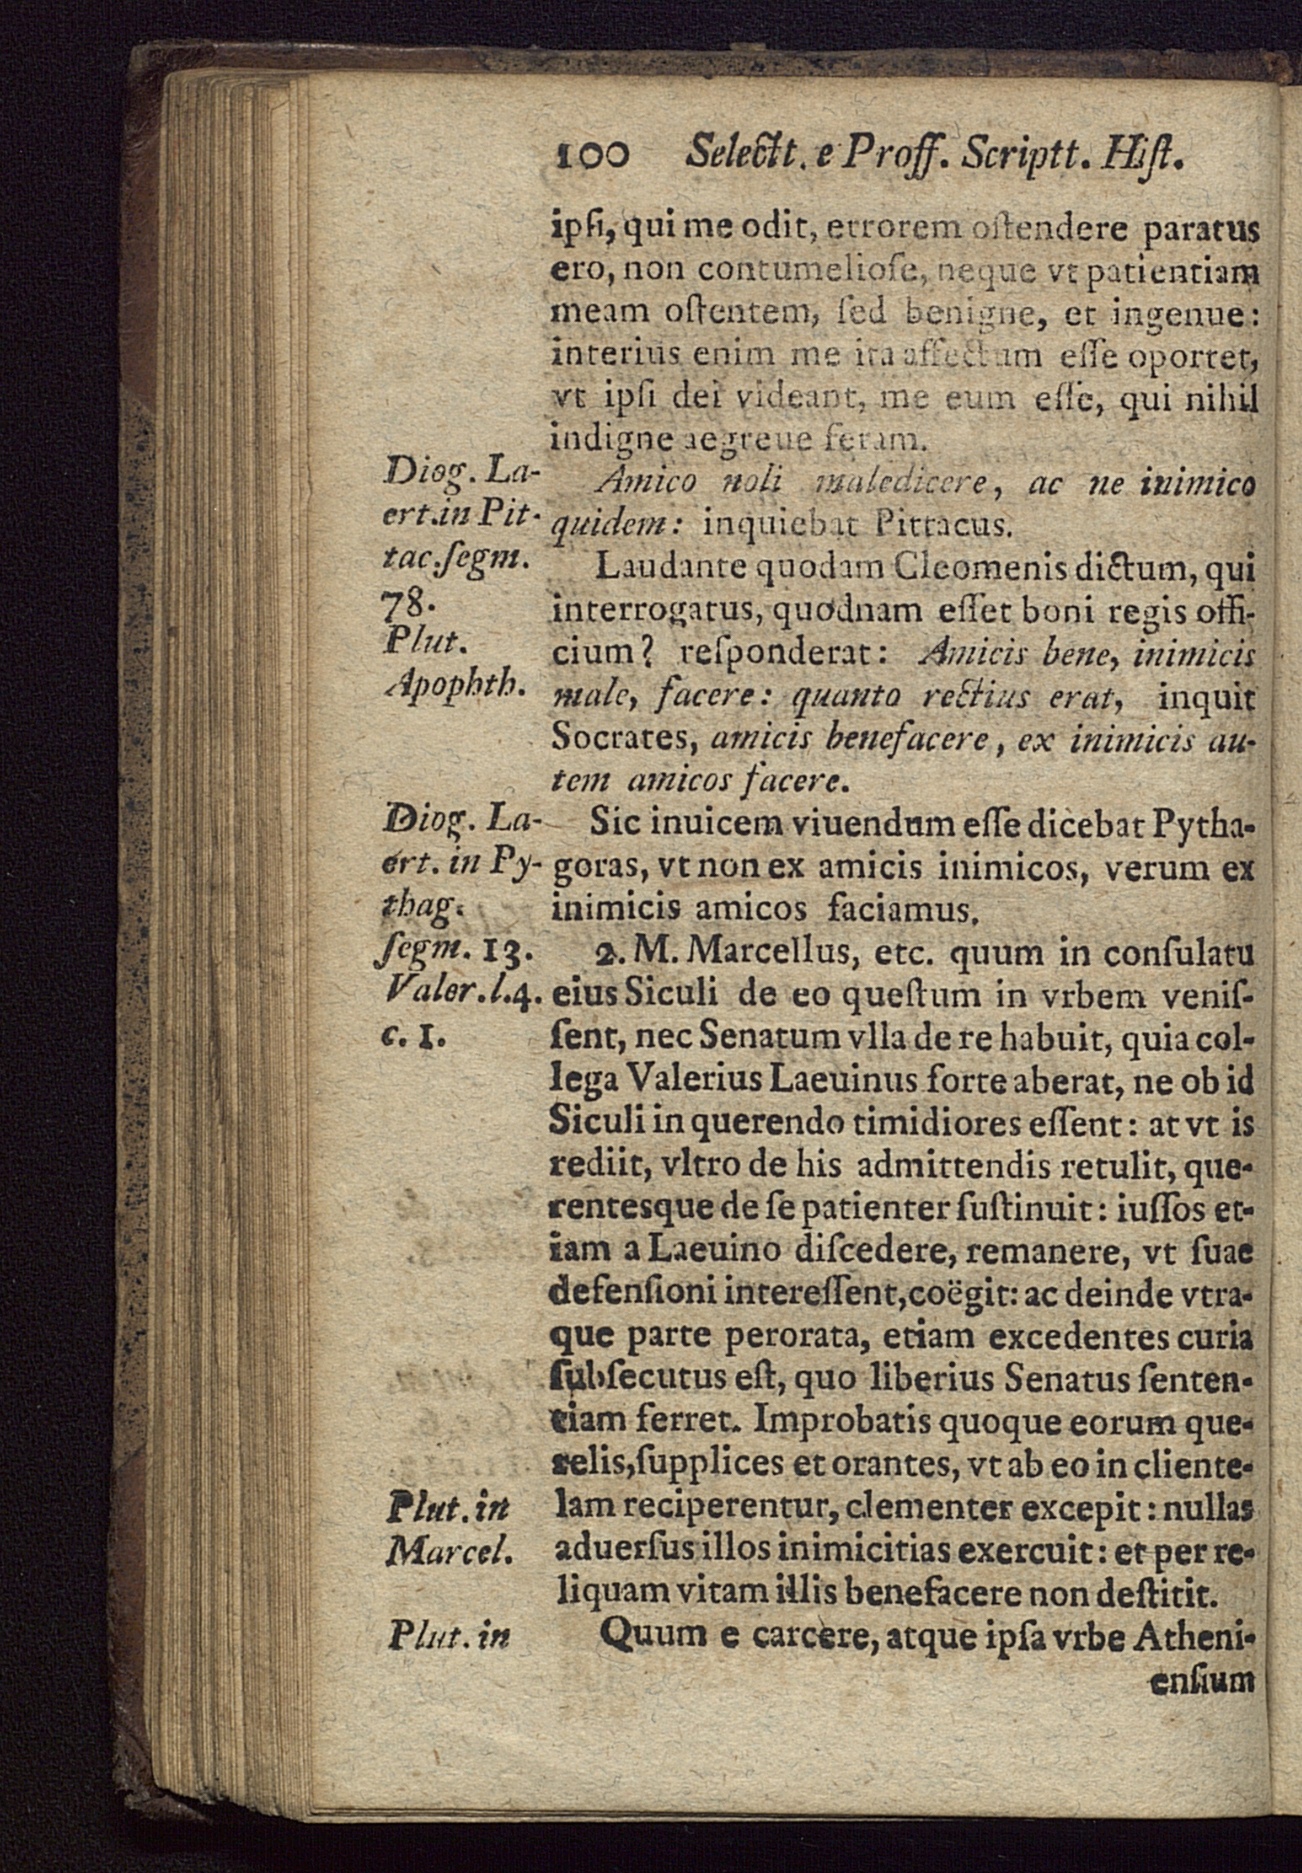 100 Selectt. e Proff. Scriptt. Hiſt.
ipſi, qui me odit, errorem oſtendere paratus
ero, non contumelioſe, neque vt patientiam
meam oſtentem, ſed benigne, et ingenue:
interius enim me ita affectum eſſe oportet,
vt ipſi dei videant, me eum eſſe, qui nihil
indigne aegreue feram.
Diog. La-
ert. in Pit-
tac. ſegm.
78.
Amico noli maledicere, ac ne inimico
quidem: inquiebat Pittacus.
Plut.
Apophth.
Laudante quodam Cleomenis dictum, qui
interrogatus, quodnam eſſet boni regis offi-
cium? reſponderat: Amicis bene, inimicis
male, facere: quanto rectius erat, inquit
Socrates, amicis benefacere, ex inimicis au-
tem amicos facere.
Diog. La-
ert. in Py-
thag.
ſegm. 13.
Sic inuicem viuendum eſſe dicebat Pytha-
goras, vt non ex amicis inimicos, verum ex
inimicis amicos faciamus.
Valer. l. 4.
c. 1.
2. M. Marcellus, etc. quum in conſulatu
eius Siculi de eo queſtum in vrbem veniſ-
ſent, nec Senatum vlla de re habuit, quia col-
lega Valerius Laeuinus forte aberat, ne ob id
Siculi in querendo timidiores eſſent: at vt is
rediit, vltro de his admittendis retulit, que-
rentesque de ſe patienter ſuſtinuit: iuſſos et-
iam a Laeuino diſcedere, remanere, vt ſuae
defenſioni intereſſent, coëgit: ac deinde vtra-
que parte perorata, etiam excedentes curia
ſubſecutus eſt, quo liberius Senatus ſenten-
tiam ferret. Improbatis quoque eorum que-
relis, ſupplices et orantes, vt ab eo in cliente-
Plut. in
Marcel.
lam reciperentur, clementer excepit: nullas
aduerſus illos inimicitias exercuit: et per re-
liquam vitam illis benefacere non deſtitit.
Plut. in
Quum e carcere, atque ipſa vrbe Atheni-
enſium